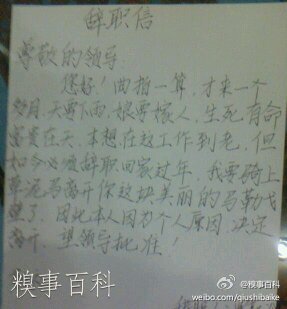 辞职信
尊敬的领导:
您好!曲指一算,才来一个
多月,天要下雨,娘要嫁人,生死有命
富贵在天,本想在这工作到老,但
如今必须辞职回家过年,我要骑上
草泥马离开你这块美丽的马勒戈
壁了,因此本人因为个人原因,决定
离开,望领导批准!
糗事百科
@糗事百科
weibo.com/qiushibaike